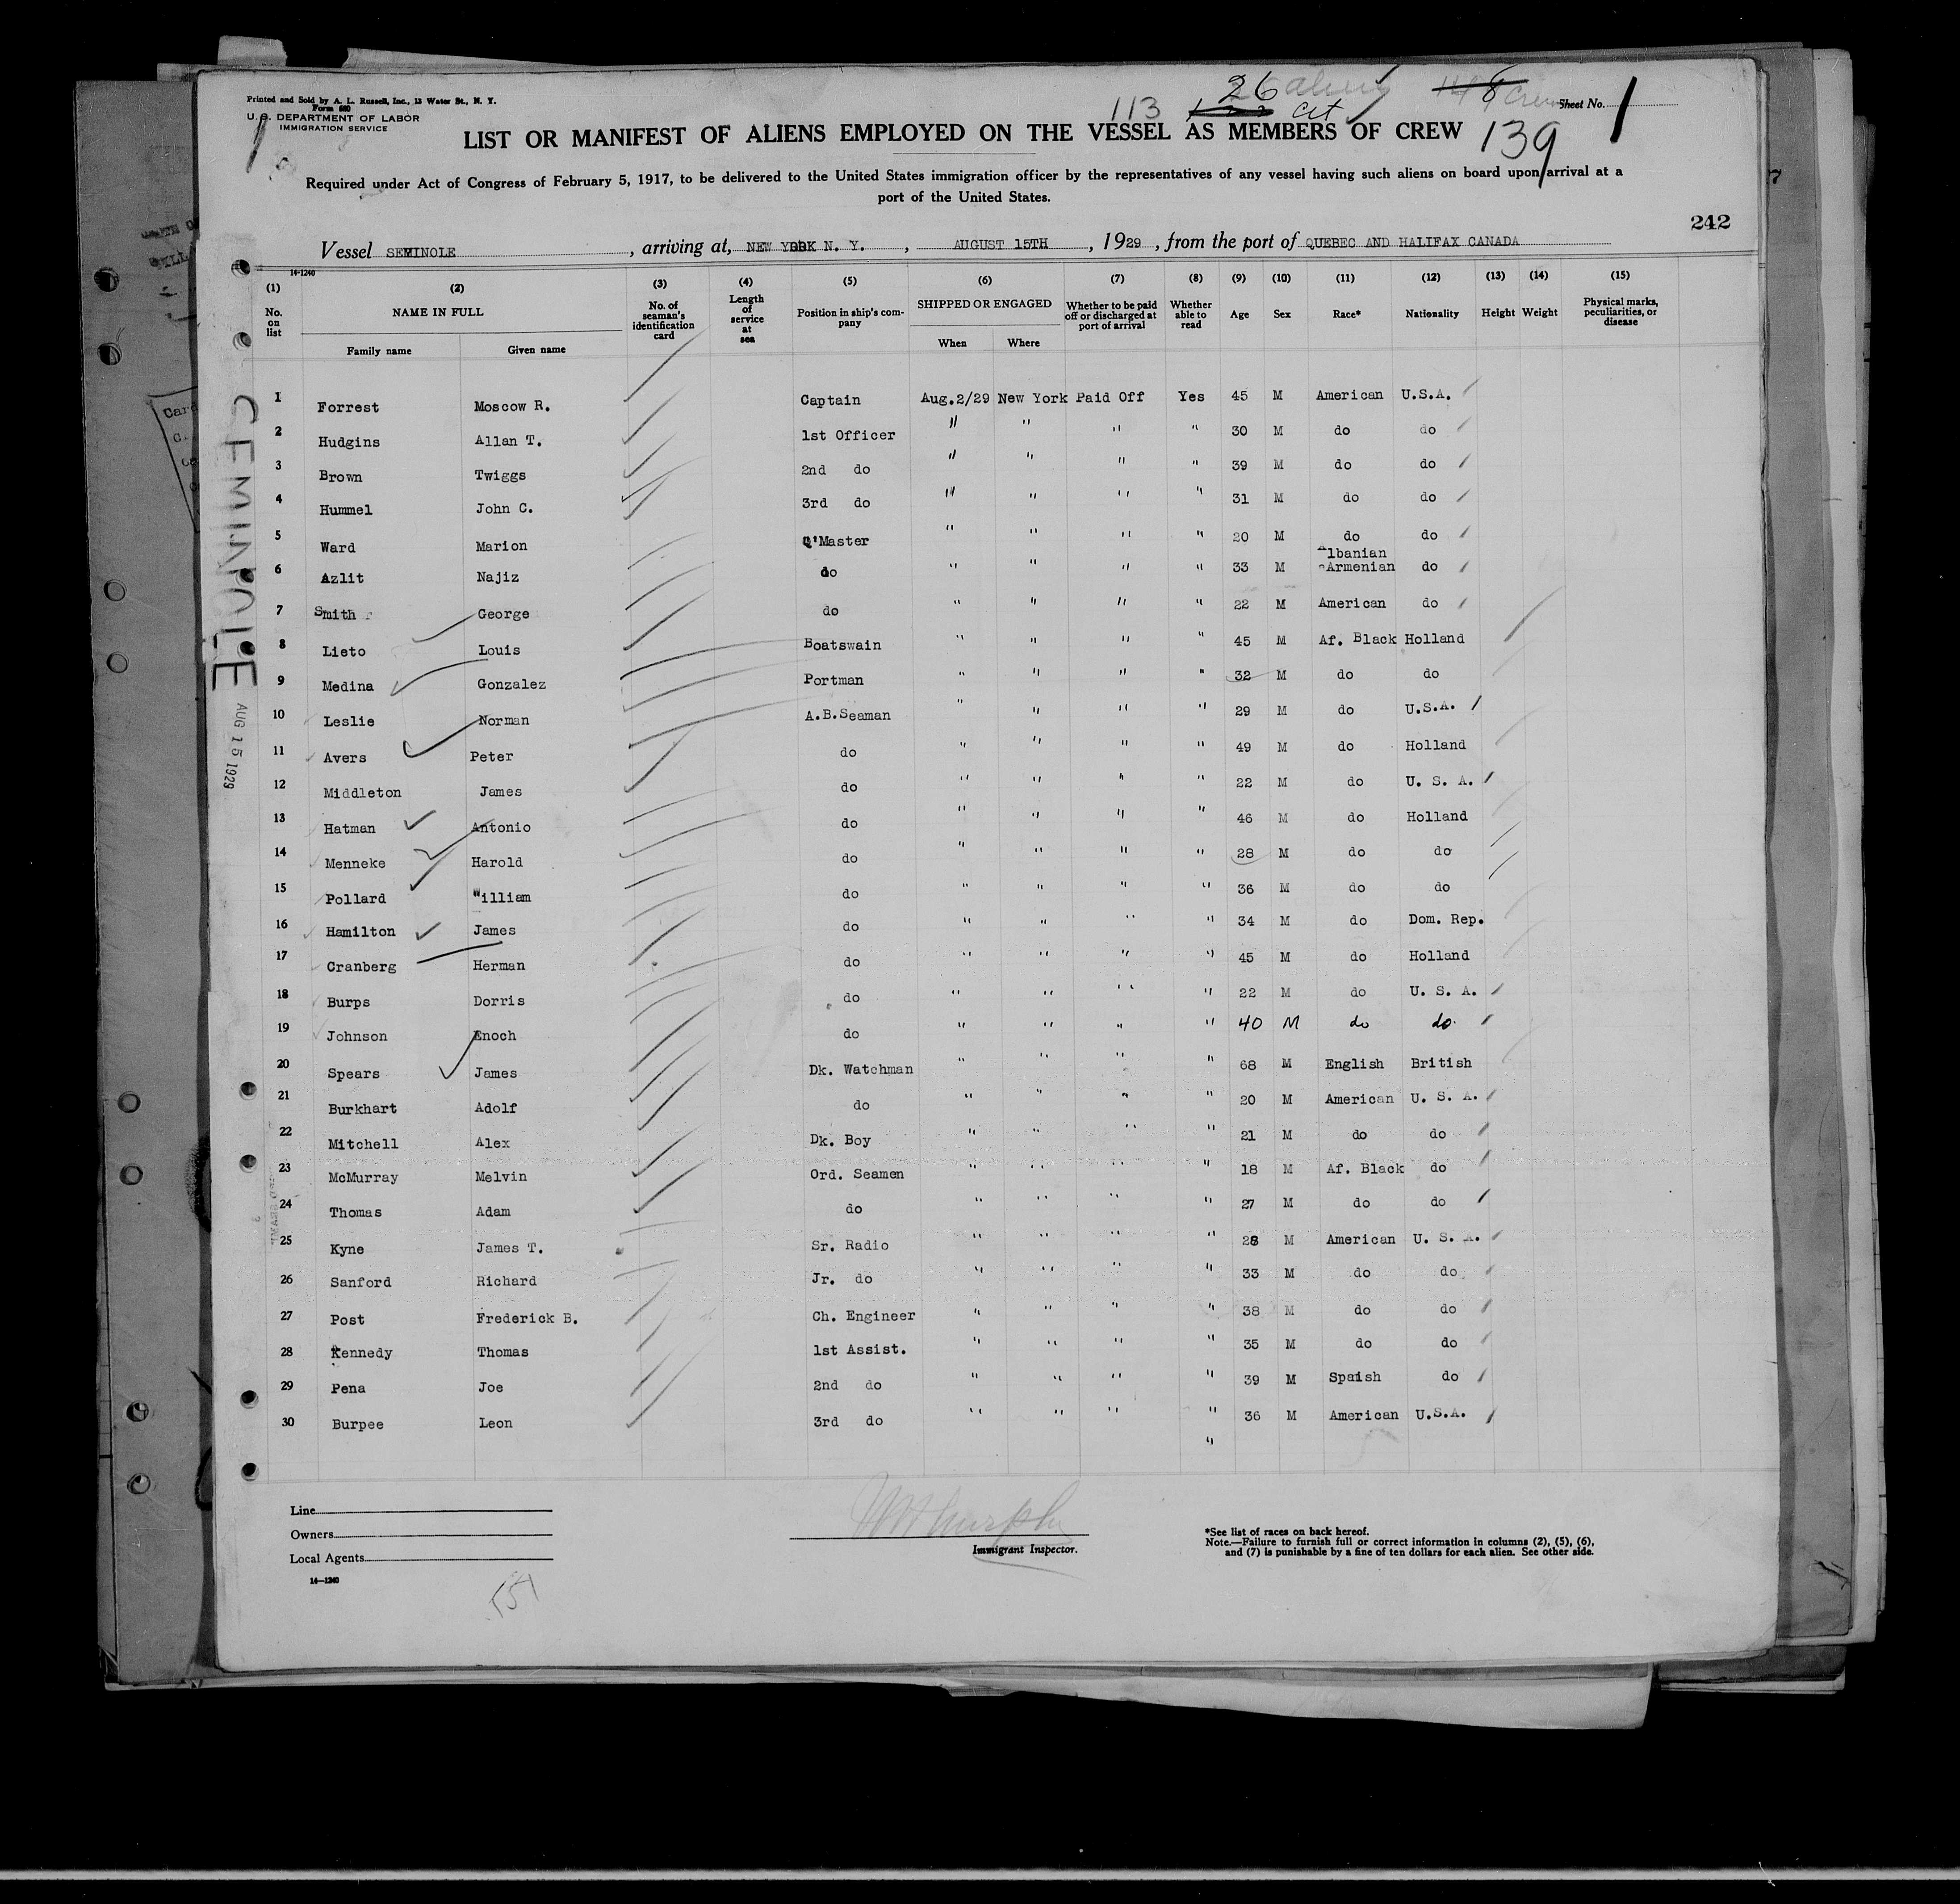 Printed and Sold by A. L. Russell, Inc., 13 Water St., N. Y.
Form 680
U.S. DEPARTMENT OF LABOR
IMMIGRATION SERVICE
113 26 aliens cit 148 crew 139
Sheet No. 1
LIST OR MANIFEST OF ALIENS EMPLOYED ON THE VESSEL AS MEMBERS OF CREW
Required under Act of Congress of February 5, 1917, to be delivered to the United States immigration officer by the representatives of any vessel having such aliens on board upon arrival at a
port of the United States.
242
Vessel SEMINOLE, arriving at, NEW YORK N. Y., AUGUST 15TH, 1929, from the port of QUEBEC AND HALIFAX CANADA
14-1240
(1) No. on list (2) NAME IN FULL Family name Given name (3) No. of seaman's identification card (4) Length of service at sea (5) Position in ship's company (6) SHIPPED OR ENGAGED When Where (7) Whether to be paid off or discharged at port of arrival (8) Whether able to read (9) Age (10) Sex (11) Race* (12) Nationality (13) Height (14) Weight (15) Physical marks, peculiarities, or disease
1 Forrest Moscow R. Captain Aug.2/29 New York Paid Off Yes 45 M American U.S.A.
2 Hudgins Allan T. 1st Officer " " " " 30 M do do
3 Brown Twiggs 2nd do " " " " 39 M do do
4 Hummel John C. 3rd do " " " " 31 M do do
5 Ward Marion Q'Master " " " " 20 M do do
6 Azlit Najiz do " " " " 33 M Albanian Armenian do
7 Smith George do " " " " 22 M American do
8 Lieto Louis Boatswain " " " " 45 M Af. Black Holland
9 Medina Gonzalez Portman " " " " 32 M do do
10 Leslie Norman A.B.Seaman " " " " 29 M do U.S.A.
11 Avers Peter do " " " " 49 M do Holland
12 Middleton James do " " " " 22 M do U. S. A.
13 Hatman Antonio do " " " " 46 M do Holland
14 Menneke Harold do " " " " 28 M do do
15 Pollard William do " " " " 36 M do do
16 Hamilton James do " " " " 34 M do Dom. Rep.
17 Cranberg Herman do " " " " 45 M do Holland
18 Burps Dorris do " " " " 22 M do U. S. A.
19 Johnson Enoch do " " " " 40 M do do.
20 Spears James Dk. Watchman " " " " 68 M English British
21 Burkhart Adolf do " " " " 20 M American U. S. A.
22 Mitchell Alex Dk. Boy " " " " 21 M do do
23 McMurray Melvin Ord. Seamen " " " " 18 M Af. Black do
24 Thomas Adam do " " " " 27 M do do
25 Kyne James T. Sr. Radio " " " " 28 M American U. S. A.
26 Sanford Richard Jr. do " " " " 33 M do do
27 Post Frederick B. Ch. Engineer " " " " 38 M do do
28 Kennedy Thomas 1st Assist. " " " " 35 M do do
29 Pena Joe 2nd do " " " " 39 M Spaish do
30 Burpee Leon 3rd do " " " " 36 M American U.S.A.
"
SEMINOLE
AUG 15 1929
Line
Owners
Local Agents
14—1240
Immigrant Inspector.
*See list of races on back hereof.
Note.—Failure to furnish full or correct information in columns (2), (5), (6),
and (7) is punishable by a fine of ten dollars for each alien. See other side.